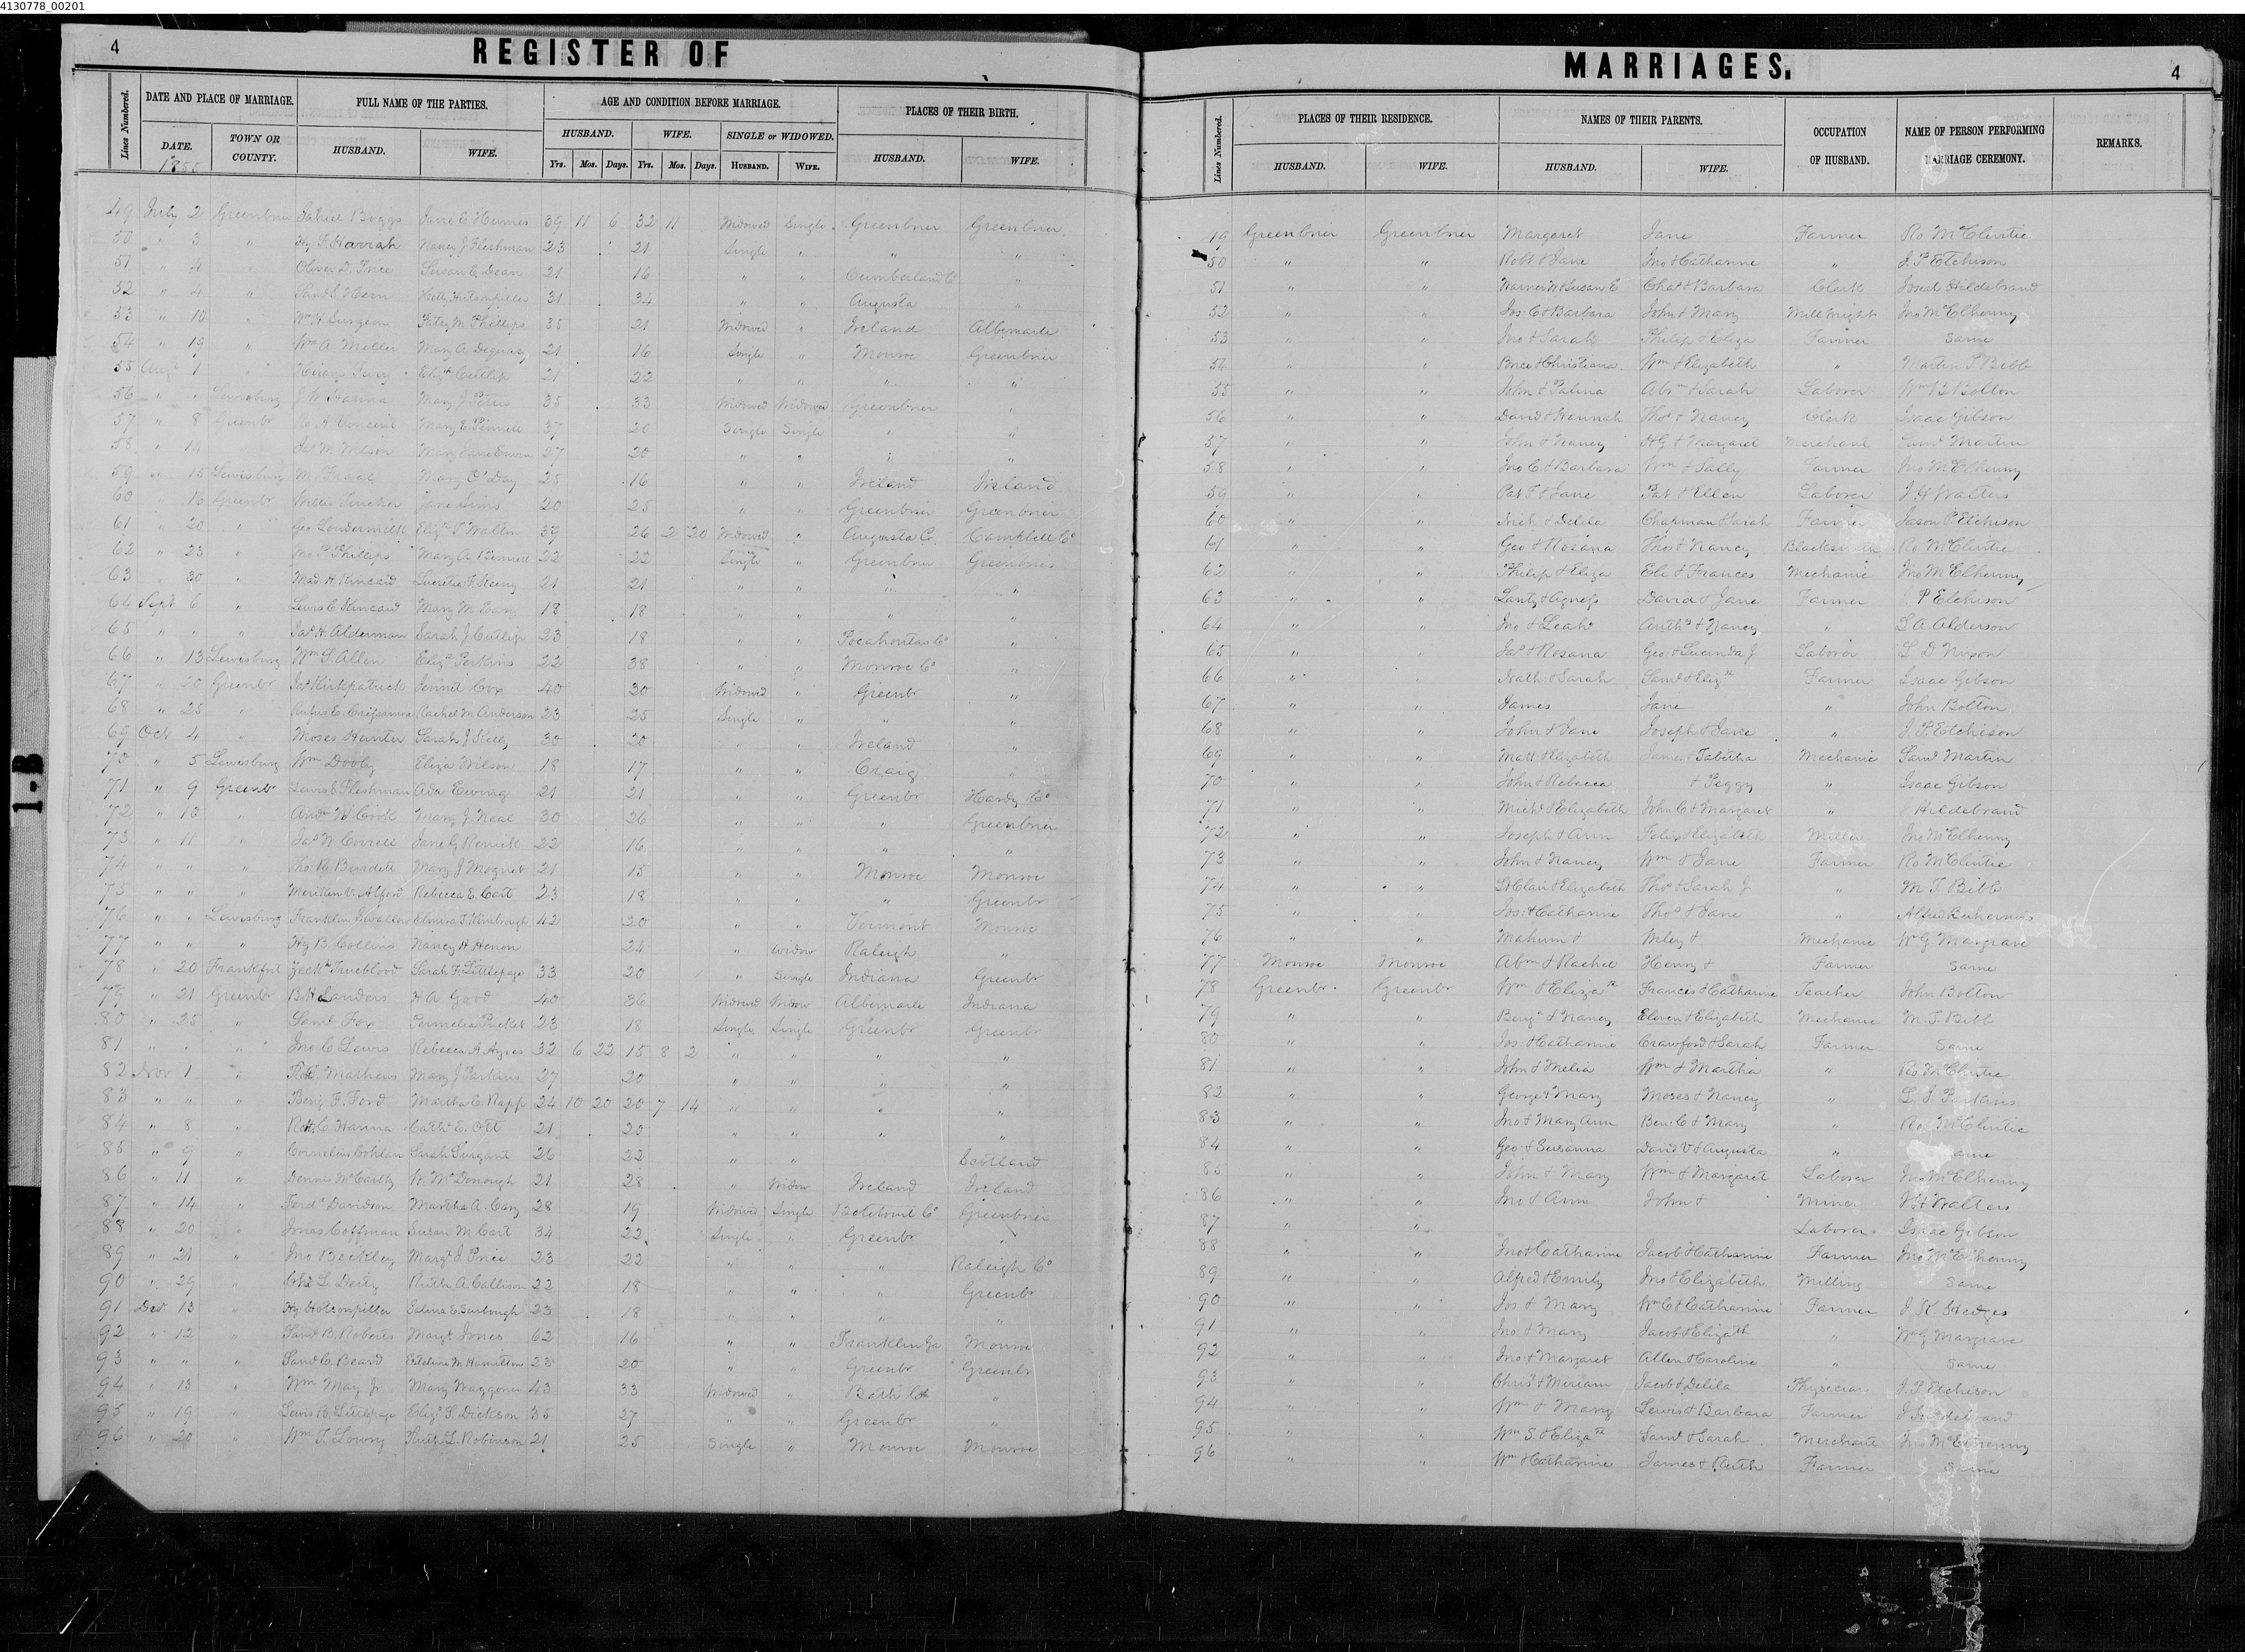 4130778_00201
4 REGISTER OF MARRIAGES. 4
Lines Numbered. DATE AND PLACE OF MARRIAGE. FULL NAME OF THE PARTIES. AGE AND CONDITION BEFORE MARRIAGE. PLACES OF THEIR BIRTH. Lines Numbered. PLACES OF THEIR RESIDENCE. NAMES OF THEIR PARENTS. OCCUPATION OF HUSBAND. NAME OF PERSON PERFORMING MARRIAGE CEREMONY. REMARKS.
DATE. TOWN OR COUNTY. HUSBAND. WIFE. HUSBAND. WIFE. SINGLE or WIDOWED. HUSBAND. WIFE. HUSBAND. WIFE. HUSBAND. WIFE.
1855 Yrs. Mos. Days. Yrs. Mos. Days. HUSBAND. WIFE.
49 July 2 Greenbrier Boggs Jane E 39 11 6 32 11 Widowed Single Greenbrier Greenbrier 49 Greenbrier Greenbrier Margaret Jane Farmer Ro McClintic
50 " 3 " Hy F. Harrah Nancy J Fleshman 23 21 Single " " " 50 " " Robt & Jane Jno & Catharine " J. P Etchison
51 " 4 " Oliver D. Price Susan C Dean 21 16 " " Cumberland Co " 51 " " Warner W & Susan E Chas & Barbara Clerk Josed Hildebrand
52 " 4 " Saml S. Hern 31 34 " " Augusta " 52 " " Jos: C & Barbara John & Mary Millwright Jno McElhenny
53 " 10 " Wm H. Surgeon Patsy M Phillips 35 21 Widowed " Ireland Albemarle 53 " " Jno & Sarah Philip & Eliza Farmer Same
54 " 19 " Wm A. Miller Mary A 21 16 Single " Monroe Greenbrier 54 " " Brice & Christiana Wm & Elizabeth " Martin T Bibb
55 Aug 1 " Hiram Eliz Cutlip 21 22 " " " " 55 " " John & Palina Abrm & Sarah Laborer Wm B Bolton
56 " " Lewisburg J W Hanna Mary J Peters 35 33 Widowed Widowed Greenbrier " 56 " " David & Hannah Thos & Nancy Clerk Isaac Gibson
57 " 8 Greenbr Ro A Vincent Mary E. Pennell 37 20 Single Single " " 57 " " John & Nancy & Margaret Merchant Saml Martin
58 " 14 Jas M Wilson Mary Jane Erwin 27 20 " " " " 58 " " Jno C. & Barbara Wm & Sally Farmer Jno McElhenny
59 " 15 Lewisburg M. Mary O'Day 25 16 " " Ireland Ireland 59 " " Pat F & Jane Pat & Ellen Laborer J H Walters
60 " 16 Greenbr Willis Tincher Jane Sims 20 25 " " Greenbrier Greenbrier 60 " " & Delila Chapman & Sarah Farmer Jason P. Etchison
61 " 20 " Geo Loudermilk Eliz T Wallon 39 26 2 20 Widowed " Augusta Co. Campbell Co 61 " " Geo & Rosana Thos & Nancy Blacksmith Ro McClintic
62 " 23 " Jno P Phillips Mary A Bennett 22 22 Single " Greenbrier Greenbrier 62 " " Philip & Eliza Eli & Frances Mechanic Jno McElhenny
63 " 30 " Mad H. Kincaid Lucretia F. 21 21 " " " " 63 " " Lanty & Agness David & Jane Farmer P Etchison
64 Sept 6 " Lewis C Kincaid Mary M. Cary 18 18 " " " " 64 " " Jno & Leah & Nancy " L A. Alderson
65 " " " Jas H. Alderman Sarah J Cutlip 23 18 " " Pocahontas Co " 65 " " Jas & Rosana Geo & Lucinda J Laborer L D Nixon
66 " 13 Lewisburg Wm S. Allen Eliz Perkins 22 38 " " Monroe Co " 66 " " Nath: & Sarah Saml & Elizth Farmer Isaac Gibson
67 " 20 Greenbr Jas Kirkpatrick Jennet Cox 40 30 Widowed " Greenbr " 67 " " James Jane " John Bolton
68 " 25 " Rufus E. Rachel M Anderson 23 25 Single " " " 68 " " John & Jane Joseph & Jane " J. P Etchison
69 Oct 4 " Moses Hunter Sarah J Kelly 30 20 " Ireland " 69 " " Matt & Elizabeth James & Tabitha Mechanic Saml Martin
70 " 5 Lewisburg Wm Dooly Eliza Wilson 18 17 " " Craig 70 " " John & Rebecca & Peggy " Isaac Gibson
71 " 9 Greenbr Lewis E Fleshman Ada Ewing 21 21 " Greenbr Hardy Co 71 " " Michl & Elizabeth John C & Margaret " Hildebrand
72 " 10 " Andw W Cook Mary J. Neal 30 26 " " " Greenbrier 72 " " Joseph & Ann Felix & Elizabeth Miller Jno McElhenny
73 " 11 " Jas W. Jane G Renick 22 16 " " " " 73 " " John & Nancy Wm & Jane Farmer Ro McClintic
74 " " " Thos R. Burdett Mary J 21 15 " " Monroe Monroe 74 " " StClair & Elizabeth Thos & Sarah J " M. T. Bibb
75 " " " V. Alford Rebecca E. Catt 23 18 " " " Greenbr 75 " " Jos: & Catharine Thos & Jane " Alfred
76 " " Lewisburg Franklin 42 20 " " Vermont Monroe 76 " " Mahum & Wiley & Mechanic Wm G Margrave
77 " " " Hy B. Collins Nancy H 24 " Widow Raleigh " 77 Monroe Monroe Abm & Rachel Henry & Farmer Same
78 " 20 Frankfort Zech Trueblood Sarah F. Littlepage 33 20 " Single Indiana Greenbr 78 Greenbr Greenbr Wm & Elizath Frances & Catharine Teacher John Bolton
79 " 21 Greenbr Landers H A. Good 40 36 Widowed Widow Albemarle Indiana 79 " " Benjn & Nancy Eleven & Elizabeth Mechanic M. T. Bibb
80 " 25 " Saml Fox Permelia Pucket 23 18 Single Single Greenbr Greenbr 80 " " Jos: & Catharine Crawford & Sarah Farmer Same
81 " " " Jno C Lewis Rebecca A. Ayres 32 6 22 15 8 2 " " " " 81 " " John & Melia Wm & Martha " Ro McClintic
82 Nov 1 " Mathews Mary J Parkins 27 20 " " " " 82 " " George & Mary Moses & Nancy " L. J Perkins
83 " " " Benj F. Ford Martha E. Rapp 24 10 20 20 7 14 " " " " 83 " " Jno & Mary Ann Ben: C & Mary " Ro McClintic
84 " 8 " C. Hanna Cathe E. Ott 21 20 " " " " 84 " " Geo: & Susanna David V & Augusta " Same
85 " 9 " Cornelius Cohlan Sarah Surgant 26 22 " " Scotland 85 " " John & Mary Wm & Margaret Laborer Jno McElhenny
86 " 11 " Dennis McCarthy McDonough 21 28 " Widow Ireland Ireland 86 " " Jno & Ann John & Miner J H Walters
87 " 14 " Ferd Davidson Martha A. Cary 28 19 Widowed Single Botetourt Co Greenbrier 87 " " Laborer Isaac Gibson
88 " 20 " Jonas Coffman Susan M. Cart 34 22 Single " Greenbr " 88 " " Jno & Catharine Jacob & Catharine Farmer Jno McElhenny
89 " 21 " Jno Beckley Margt J Price 23 22 " " " Raleigh Co 89 " " Alfred & Emily Jno & Elizabeth Milling Same
90 " 29 " Chs L Deitz Ruth A. Callison 22 18 " " " Greenbr 90 " " Jos. & Mary Wm C & Catharine Farmer J K. Hedges
91 Dec. 13 " Hy Holsonpiller Salina E. 23 18 " " " " 91 " " Jno: & Mary Jacob & Elizath " Wm G Margrave
92 " 12 " Saml B. Roberts Margt Jones 62 16 " " Franklin Ga Monroe 92 " " Jno: & Margaret Allen & Caroline " Same
93 " " " Saml C. Beard M. Hamilton 23 20 " " Greenbr Greenbr 93 " " Christ & Miriam Jacob & Delila Physician J. P. Etchison
94 " 13 " Wm May Jr Mary Waggoner 43 33 Widowed " Bath Co " 94 " " Wm & Mary Lewis & Barbara Farmer J Hildebrand
95 " 19 " Lewis B. Littlepage Eliz S. Dickson 35 27 " " Greenbr " 95 " " Wm S. & Elizath Saml & Sarah Merchant Jno McElhenny
96 " 20 " Wm T. Lowry Ruth L. Robinson 21 25 Single " Monroe Monroe 96 " " Wm & Catharine James & Ruth Farmer Same
1-B